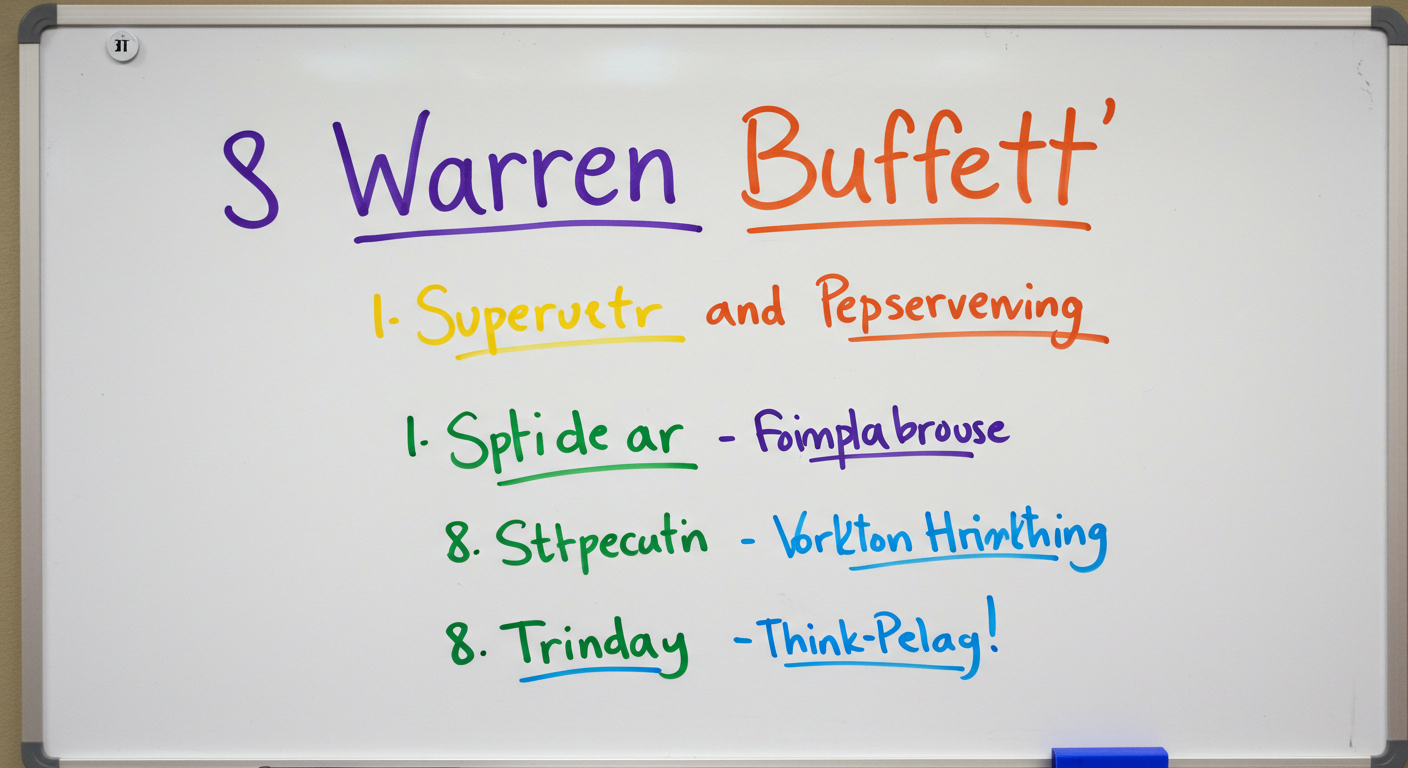 8 Warren Buffett'
1. Supervetr and Pepservenving
1. Sptide ar - Foimplabrouse
8. Sttpecutin - Vorkton Hrinkthing
8. Trinday - Think-Pelag!